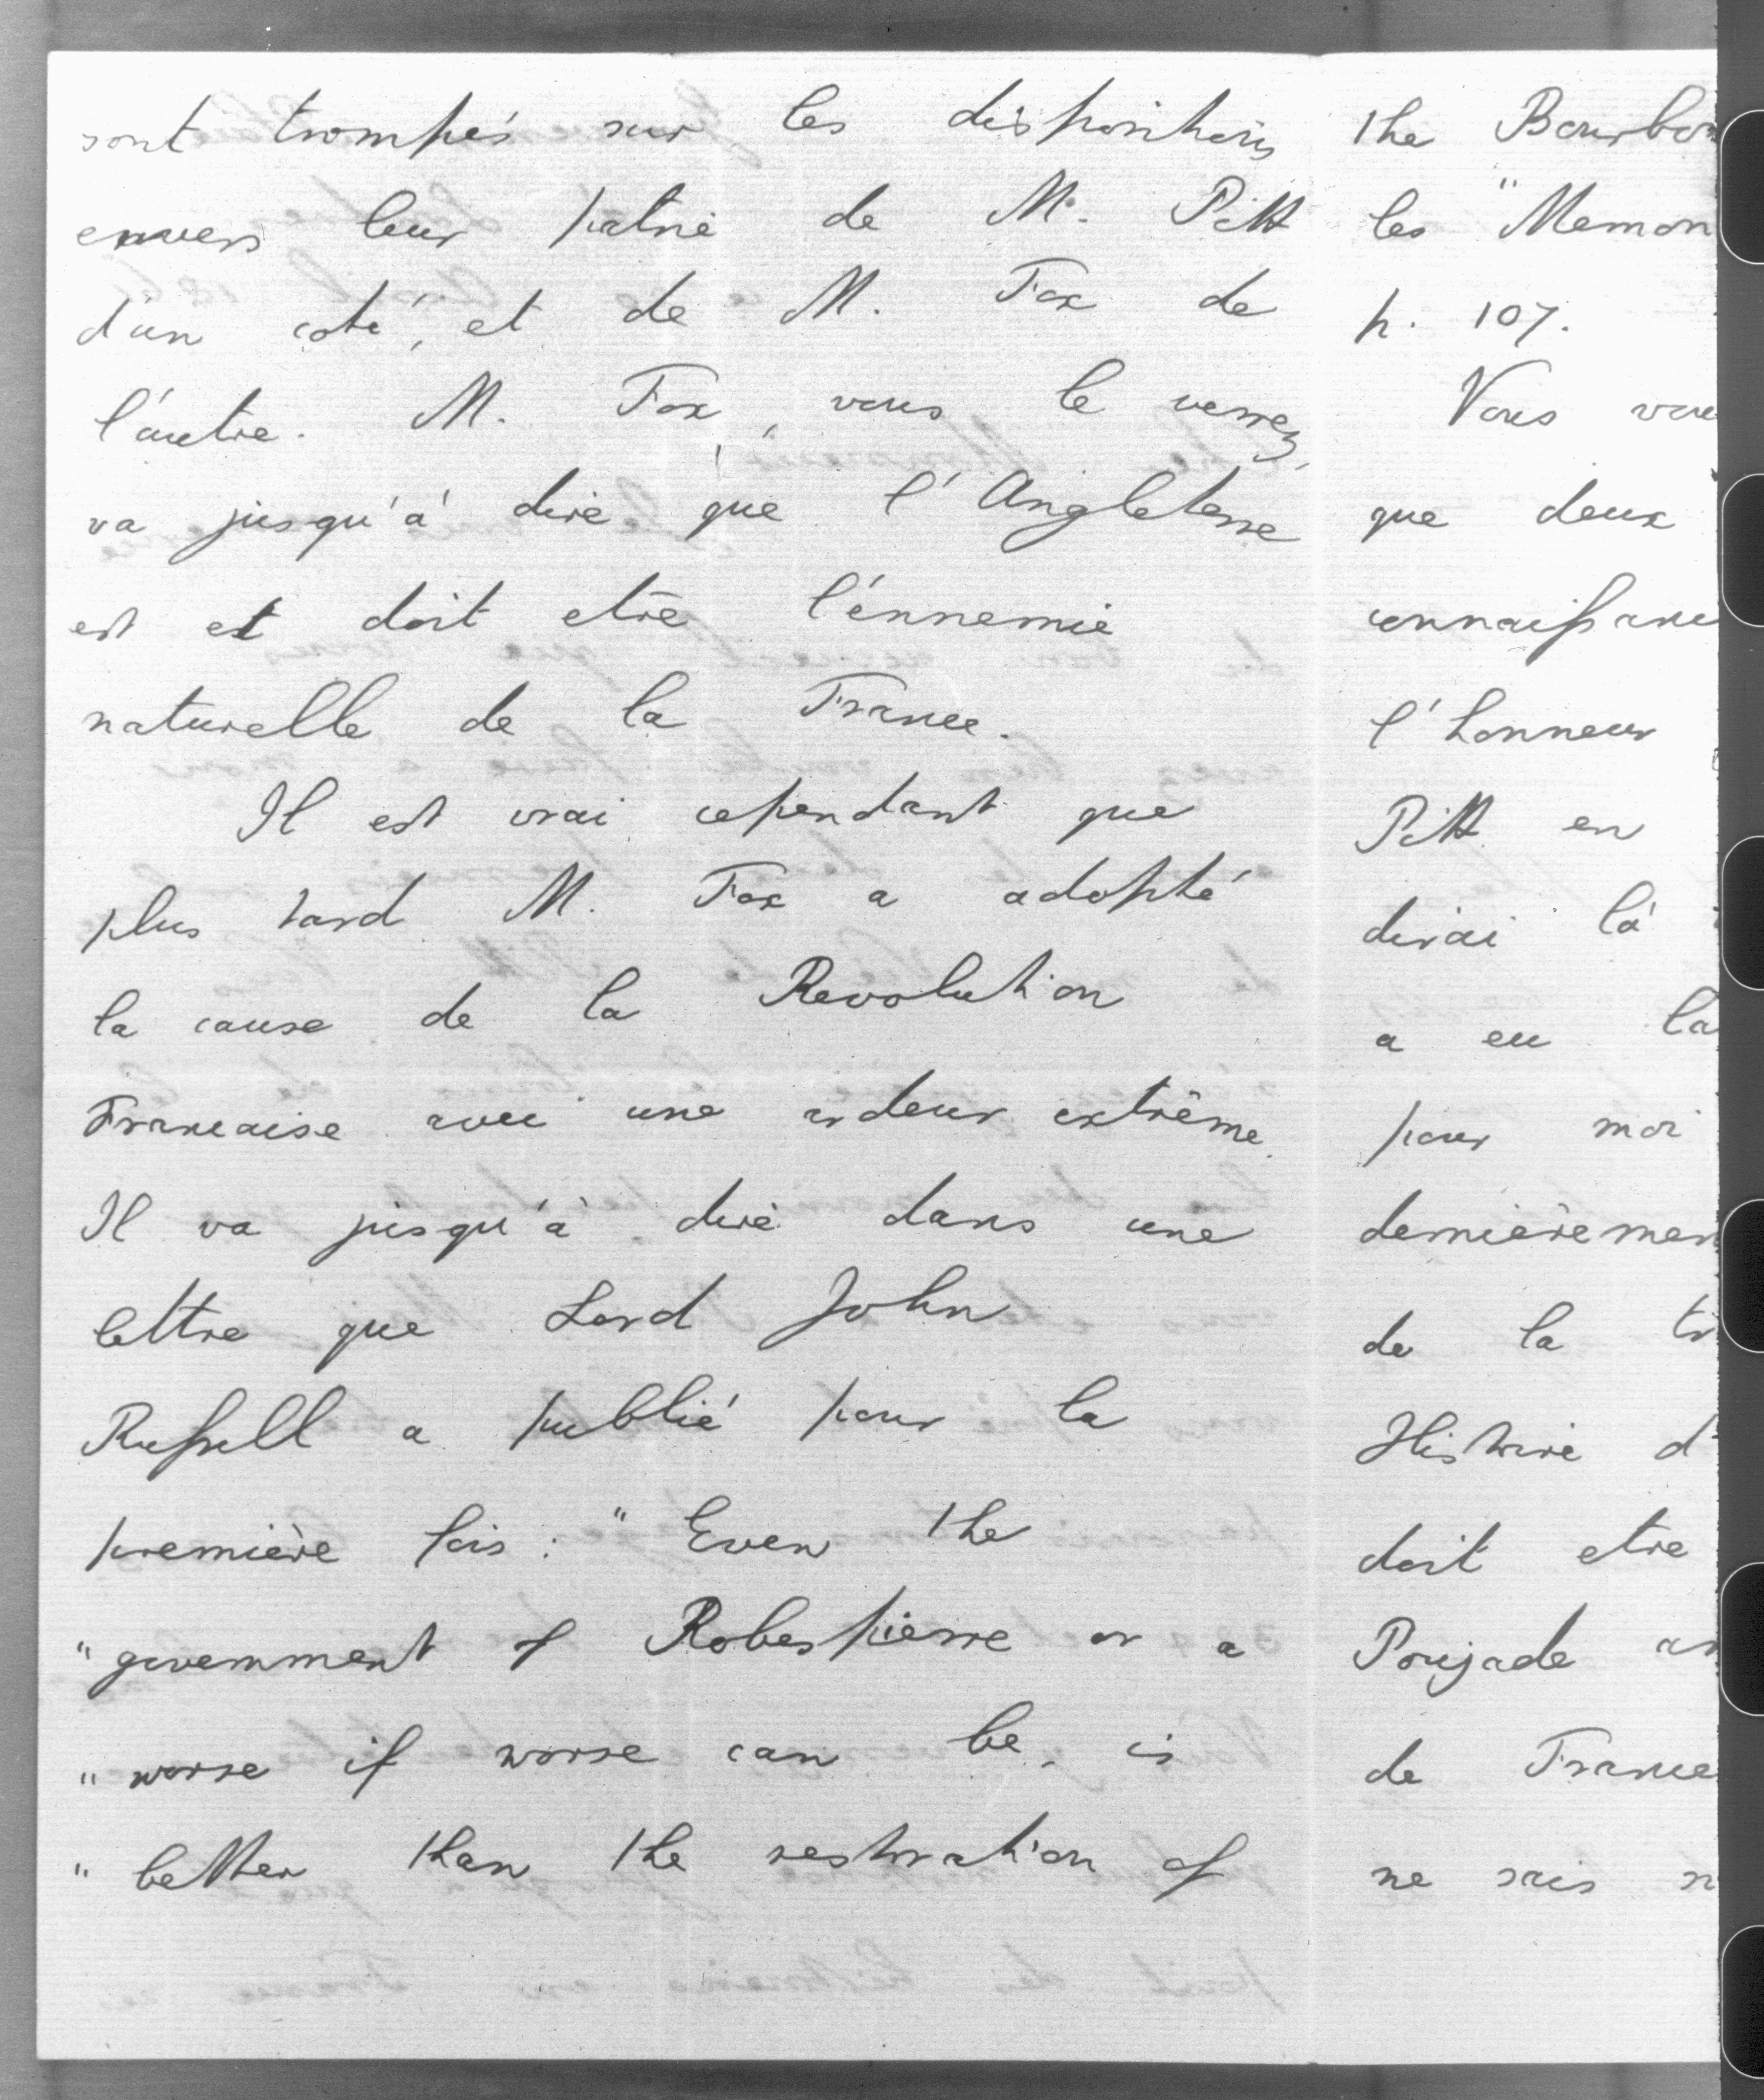 sont trompés sur les dispositions
envers leur patrie de M. Pitt
d'un coté, et de M. Fox de
l'autre. M. Fox, vous le verrez,
va jusqu'à dire que l'Angleterre
est et doit etre l'ennemie
naturelle de la France.
Il est vrai cependant que
plus tard M. Fox a adopté
la cause de la Revolution
Francaise avec une ardeur extrême.
Il va jusqu'à dire dans une
lettre que Lord John
Russell a publié pour la
première fois : "Even the
"government of Robespierre or a
"worse if worse can be, is
"better than the restoration of
the Bourbon
les "Memori
p. 107.
Vous vou
que deux
connaissance
l'honneur
Pitt en
dirai là
a eu la
pour moi
dernièremen
de la tr
Histoire d'
doit etre
Poujade an
de France
ne sais n